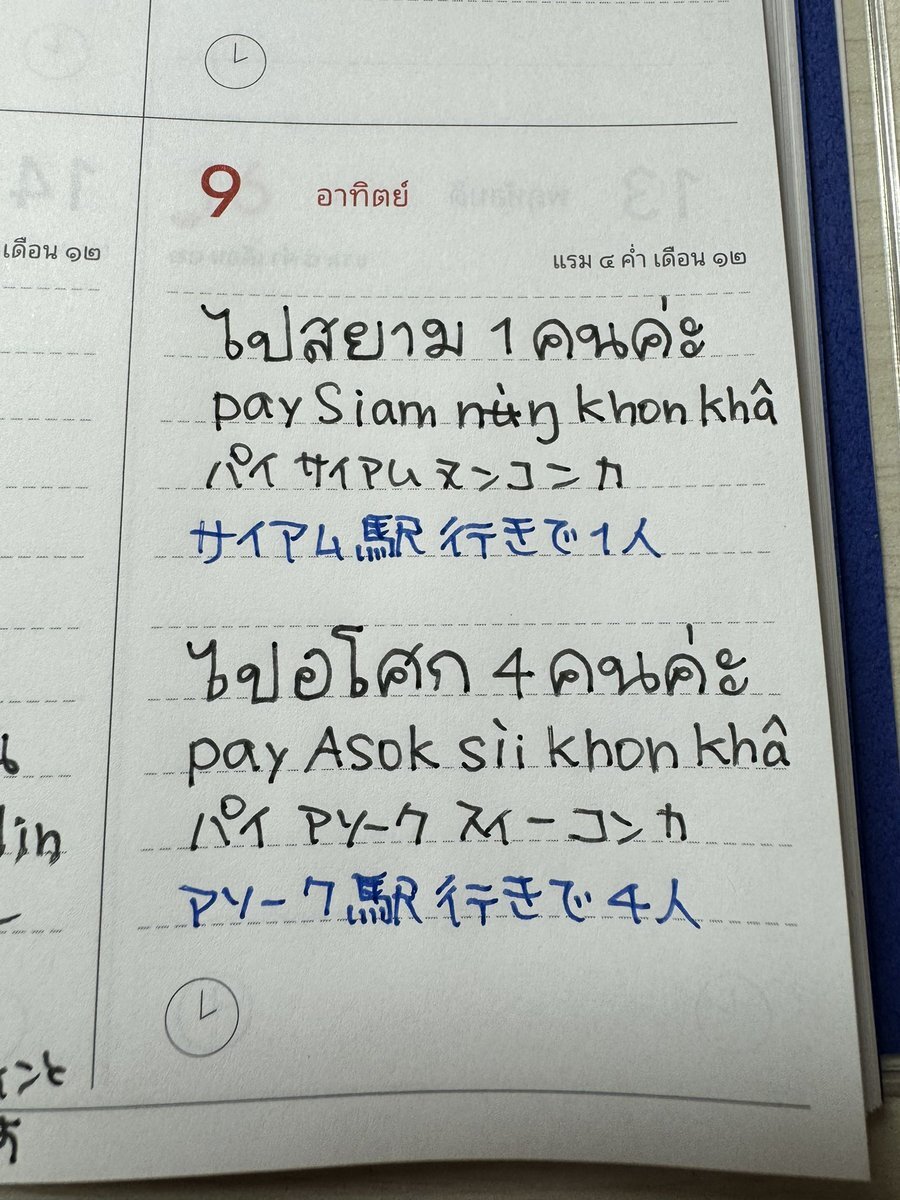 9 อาทิตย์
เดือน ๑๒
แรม ๔ ค่ำ เดือน ๑๒
ไปสยาม 1 คนค่ะ
pay Siam nʉ̀ŋ khon khâ
パイ サイアム ヌン コン カ
サイアム駅 行きで1人
ไปอโศก 4 คนค่ะ
pay Asok sìi khon khâ
パイ アソーク スィー コン カ
アソーク駅 行きで 4人
lin